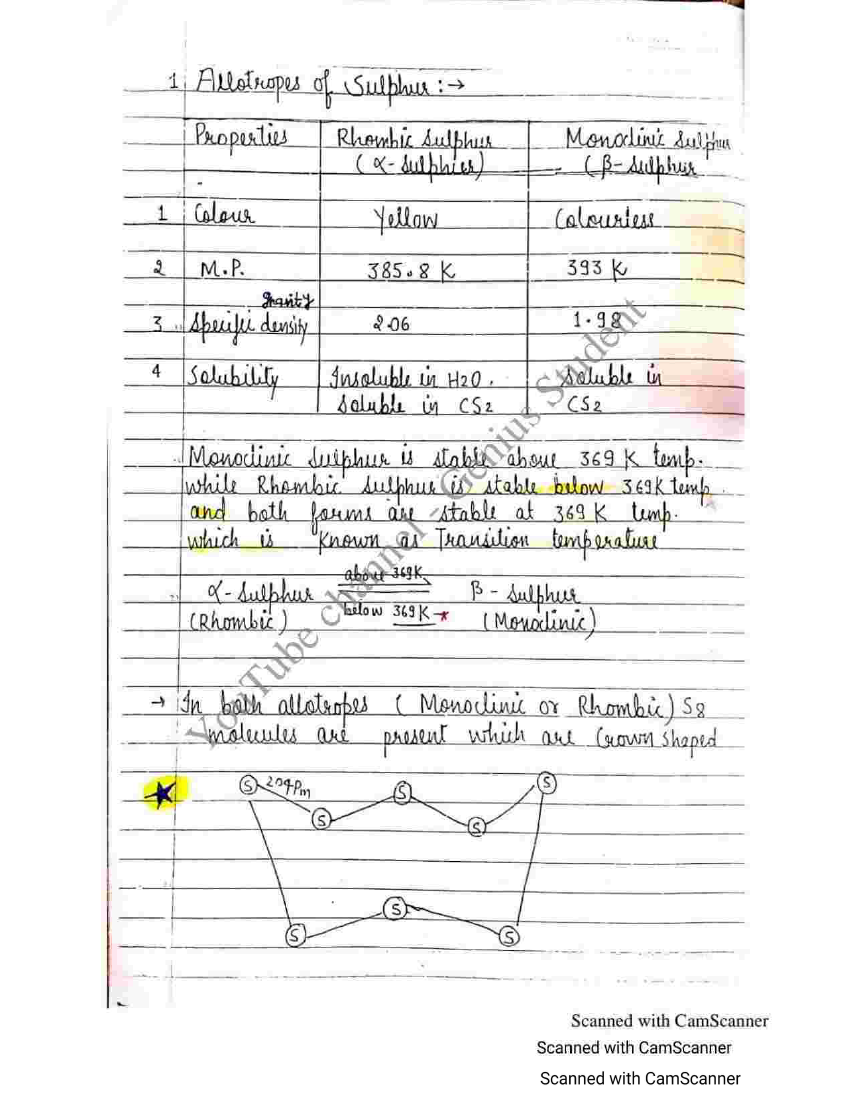 1 Allotropes of Sulphur :→
Properties Rhombic Sulphur Monoclinic Sulphur
(α- Sulphur) (β- Sulphur
1 Colour Yellow Colourless
2 M.P. 385.8 K 393 K
gravity
3 Specific density 2.06 1.98
4 Solubility Insoluble in H2O. Soluble in
Soluble in CS2 CS2
Monoclinic Sulphur is stable above 369 K temp.
while Rhombic Sulphur is stable below 369K temp
and both forms are stable at 369 K temp.
which is known as Transition temperature
above 369K
α- Sulphur β - Sulphur
below 369K
(Rhombic) (Monoclinic)
→ In both allotropes ( Monoclinic or Rhombic) S8
molecules are present which are Crown shaped
S 204Pm S S S S
S S S
YouTube channel - Genius Student
Scanned with CamScanner
Scanned with CamScanner
Scanned with CamScanner